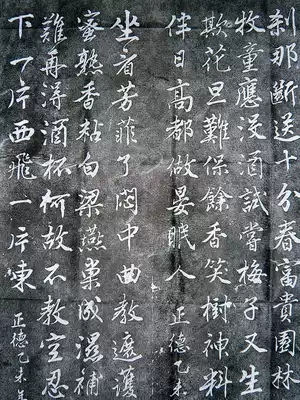 刹那斷送十分春富貴園林
牧童應沒酒試嘗梅子又生
欺花旦難保餘香笑樹神料
伴日高都做晏眠人 正德乙未
坐看芳菲了悶中曲教遮護
蜜熟香粘白梁燕巢成濕補
難再得酒杯何故不教空忍
下了片西飛一片東 正德乙未年